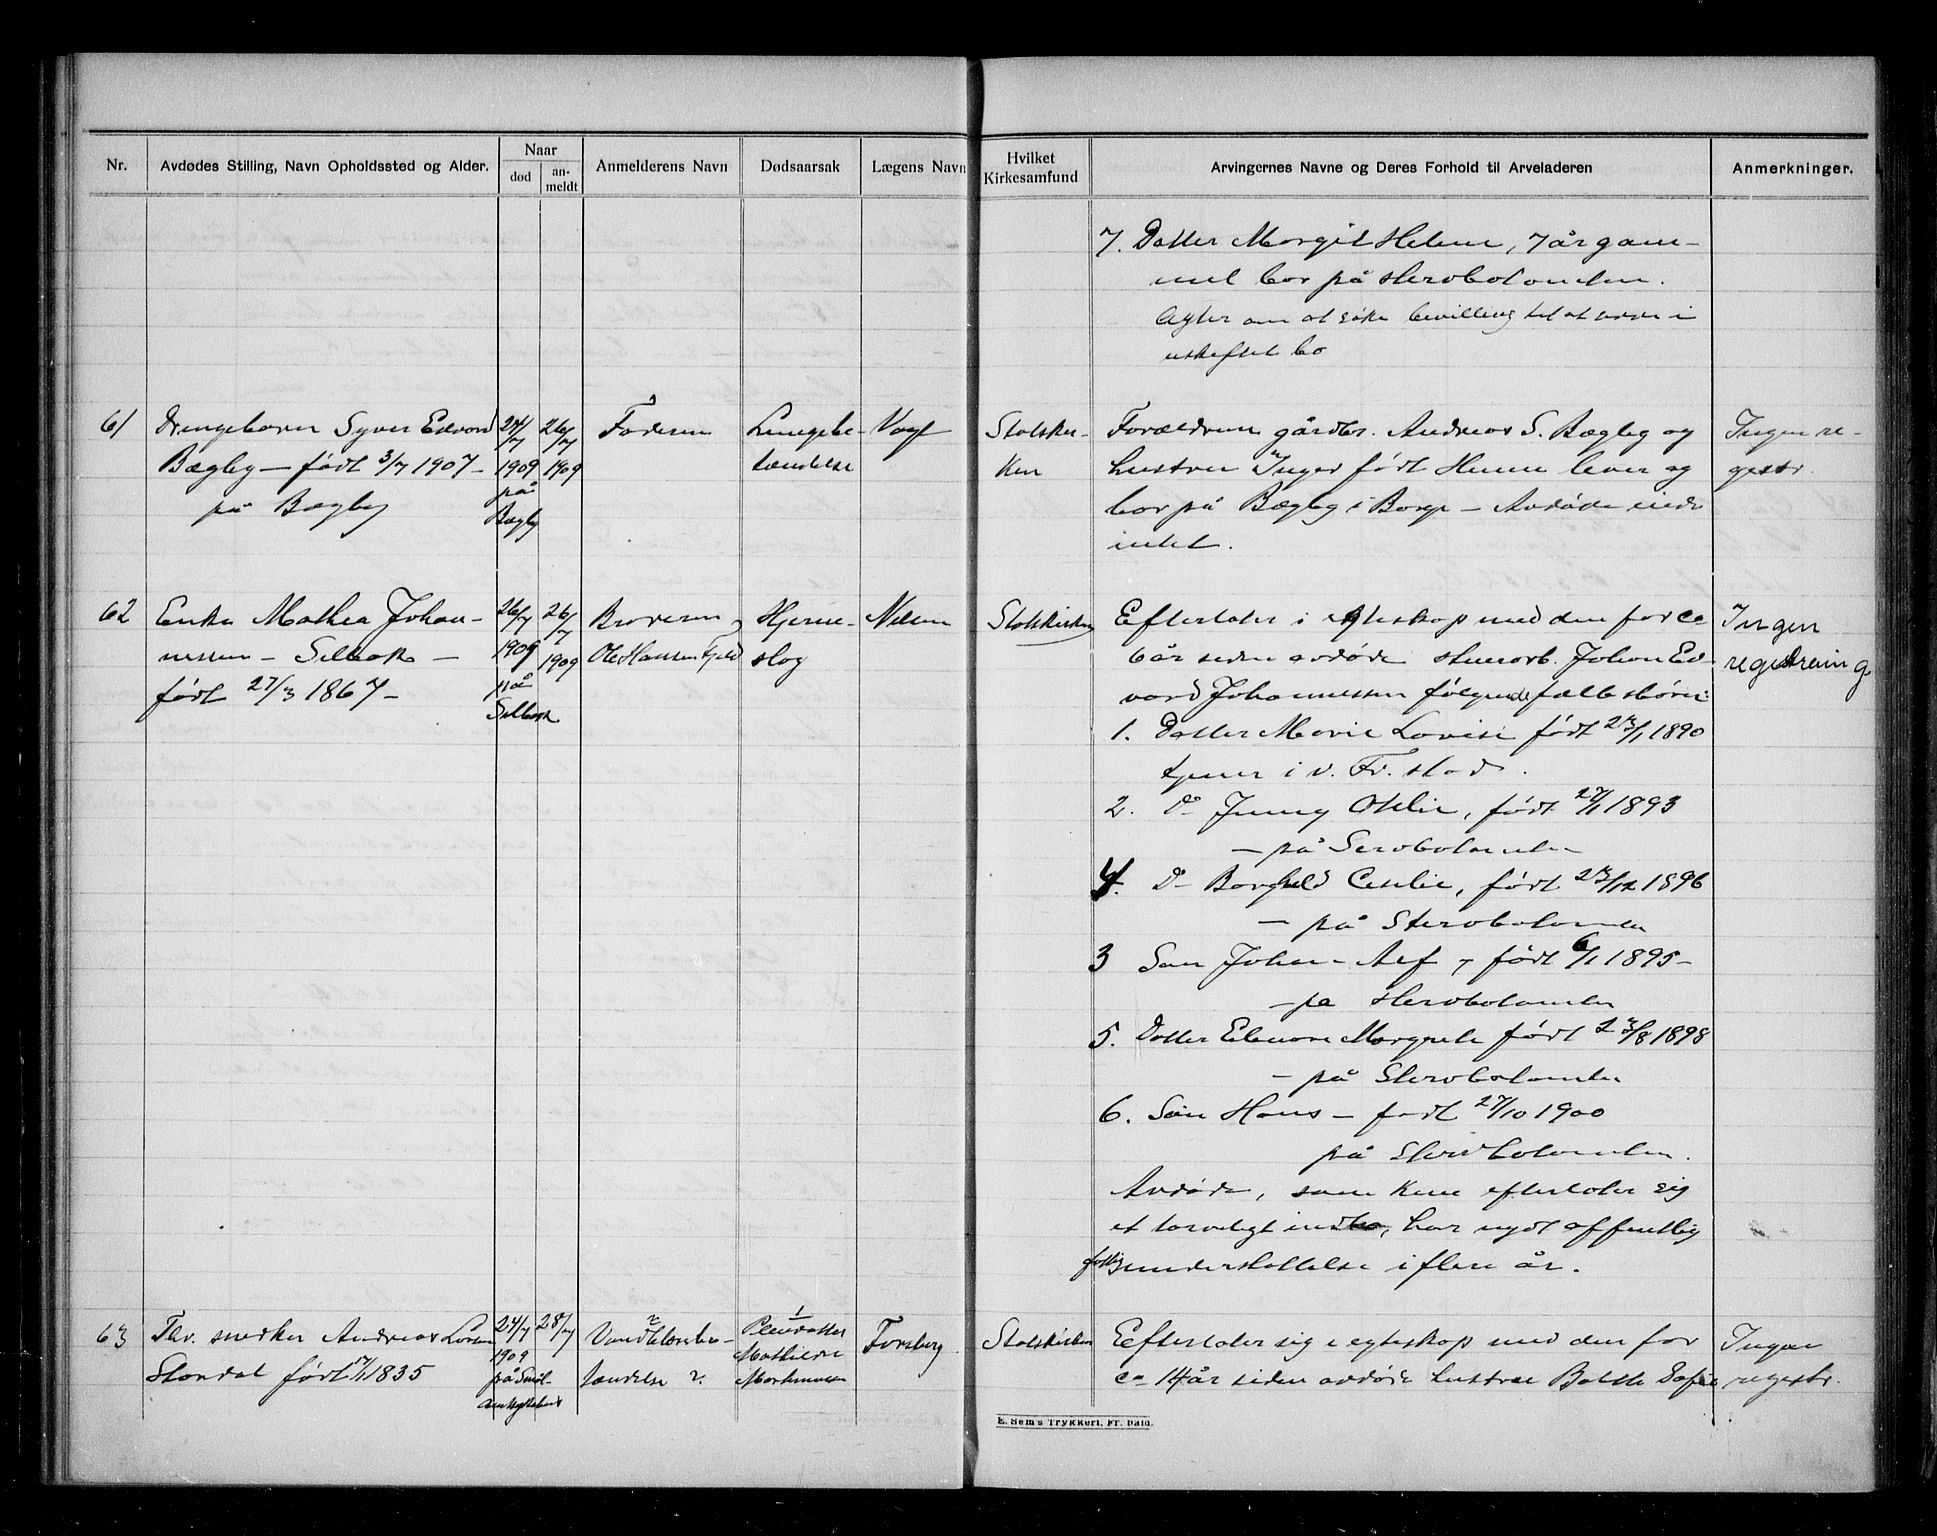 Nr.
Avdødes Stilling, Navn Opholdssted og Alder.
Naar
død
an-
meldt
Anmelderens Navn
Dødsaarsak
Lægens Navn
Hvilket
Kirkesamfund
Arvingernes Navne og Deres Forhold til Arveladeren
Anmerkninger.
7. Datter Margit Helene, 7 år gam-
mel bor på
Agter om at søke bevilling til at være i
uskiftet bo
61
Drengebarn Syver Edvard
Bægby - født 3/7 1907 -
på Bægby
24/7
1909
på
Bægby
26/7
1909
Faderen
Lungebe-
tændelse
Vogt
Statskir-
ken
Forældrene gårdbr. Andreas S. Bægby og
hustru Inger født Henne lever og
bor på Bægby i Borge - Avdøde eiede
intet.
Ingen re-
gestr.
62
Enke Mathea Johan-
nessen - Selbak -
født 27/3 1867 -
26/7
1909
på
Selbak
26/7
1909
Broderen
Ole Hansen Fjeld
Hjerne-
slag
Nilsen
Statskirken
Efterlater i egteskap med den for ca
6 år siden avdøde Johan Ed-
vard Johannessen følgende fælles børn:
1. Datter Marie Lovise født 23/1 1890
tjener i v. Fr. stad.
2. Do Jenny Otilie, født 27/1 1893
- på
4. Do Borghild Cecilie, født 23/12 1896
- på
3 Søn Johan Alf, født 6/1 1895 -
- på
5. Datter Elenore Margrete født 23/8 1898
- på
6. Søn Hans - født 27/10 1900
på
Avdøde, som kun efterlater sig
et tarveligt indbo, har nydt offentlig
fattigunderstøttelse i flere år.
Ingen
registrering
63
Fhv. snekker Andreas Larsen
Standal født 17/1 1835
24/7
1909
på
28/7
1
Pleiedatter
Mathilde
Martinusen
2
Vandblærebe-
tændelse 2.
Forsberg
Statskirken
Efterlater sig i egteskap med den for
ca 14 år siden avdøde hustru
Ingen
registr.
E. Sem's Trykkeri, Fr. hald.